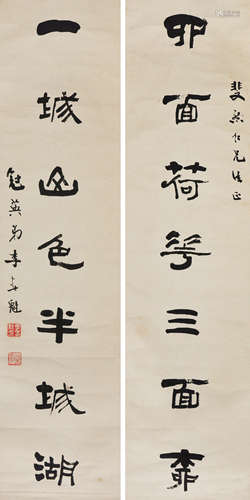 斐然仁兄法正
四面荷花三面柳
一城山色半城湖
弟李